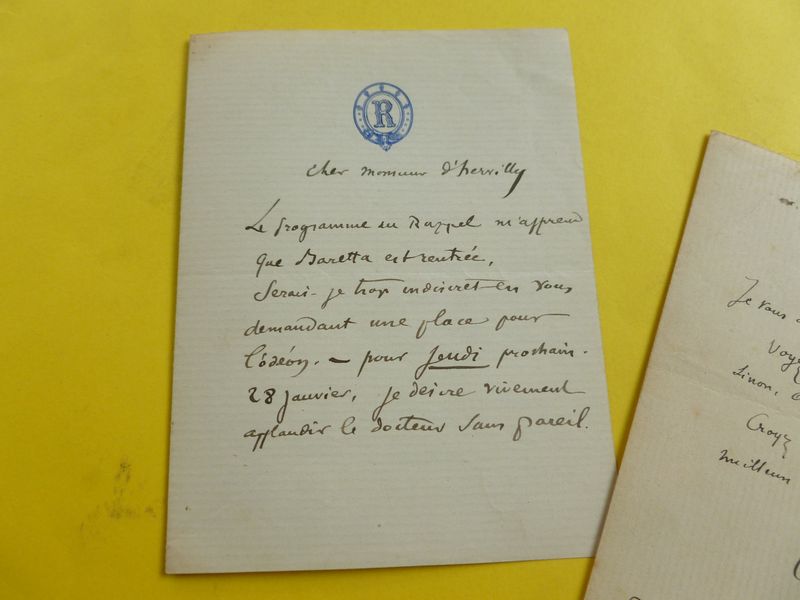 R
cher monsieur d'hervilly
Le programme du Rappel m'apprend
que Baretta est rentrée,
Serais-je trop indiscret en vous
demandant une place pour
l'odéon. — pour Jeudi prochain.
28 janvier, je désire vivement
applaudir le docteur sans pareil.
Je vous
Voye
sinon,
Croyez
meilleurs